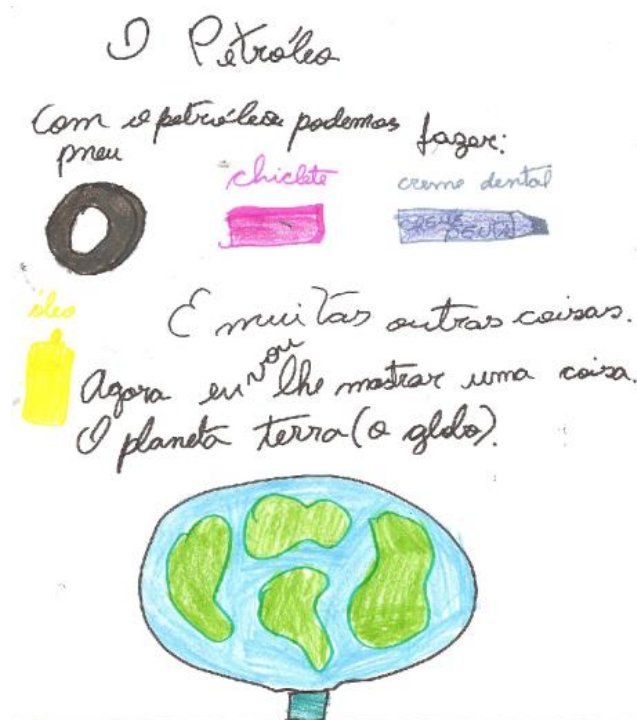 O Petróleo
Com o petróleo podemos fazer:
pneu
chiclete
creme dental
CREME
DENTAL
óleo
E muitas outras coisas.
Agora eu vou lhe mostrar uma coisa.
O planeta terra (o globo).